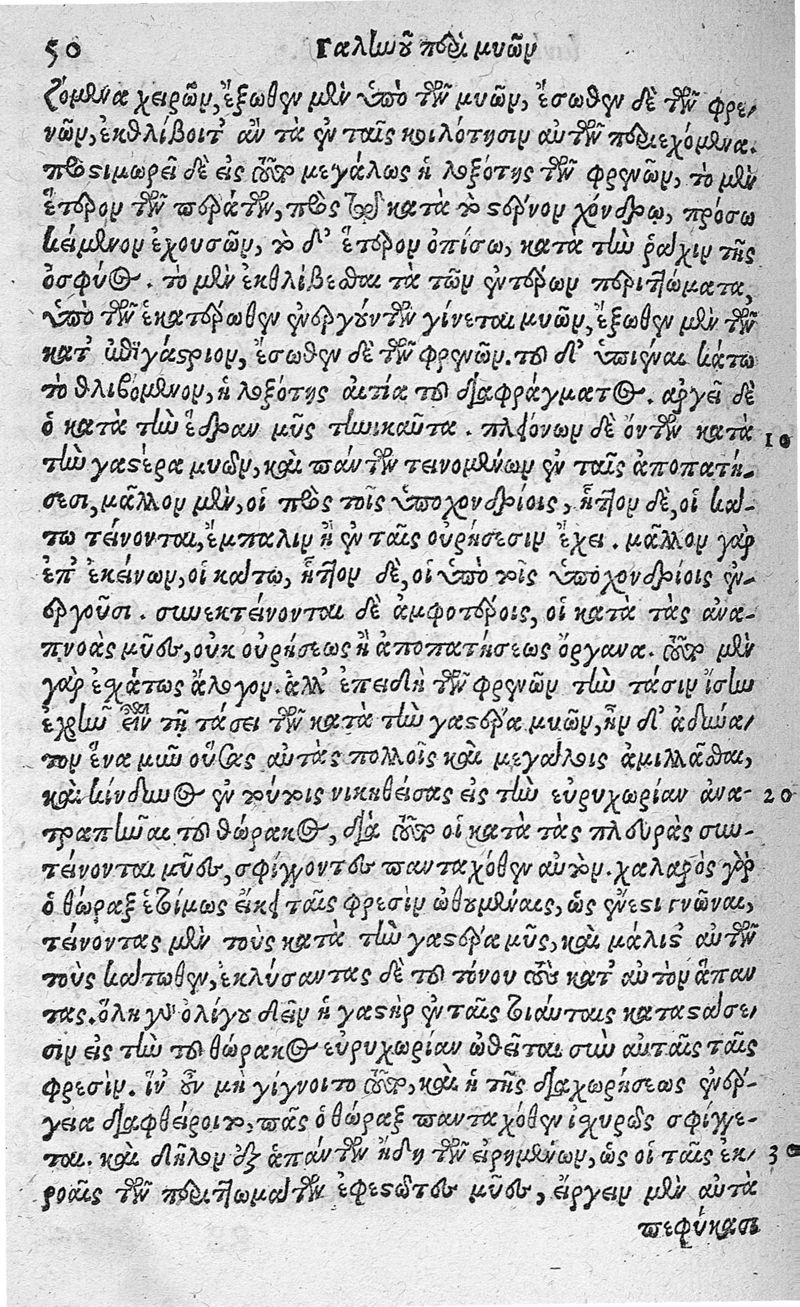 50 Γαληνοῦ περὶ μυῶν
ζόμενα χειρῶν, ἔξωθεν μὲν ὑπὸ τῶν μυῶν, ἔσωθεν δὲ τῶν φρε-
νῶν, ἐκθλίβοιτ᾽ ἂν τὰ ἐν ταῖς κοιλότησιν αὐτῶν περιεχόμενα.
προστιμωρεῖ δὲ εἰς τοῦτο μεγάλως ἡ λοξότης τῶν φρενῶν, τὸ μὲν
ἕτερον τῶν περάτων, πρὸς τῷ κατὰ τὸ στέρνον χόνδρῳ, πρόσω
κείμενον ἐχουσῶν, τὸ δ᾽ ἕτερον ὀπίσω, κατὰ τὴν ῥάχιν τῆς
ὀσφύος. τὸ μὲν ἐκθλίβεσθαι τὰ τῶν ἐντέρων περιττώματα,
ὑπὸ τῶν ἑκατέρωθεν ἐνεργούντων γίνεται μυῶν, ἔξωθεν μὲν τῶν
κατ᾽ ἐπιγάστριον, ἔσωθεν δὲ τῶν φρενῶν. τοῦ δ᾽ ὑπιέναι κάτω
τὸ θλιβόμενον, ἡ λοξότης αἰτία τοῦ διαφράγματος. ἀργεῖ δὲ
ὁ κατὰ τὴν ἕδραν μῦς τηνικαῦτα. πλειόνων δὲ ὄντων κατὰ 10
τὴν γαστέρα μυῶν, καὶ πάντων τεινομένων ἐν ταῖς ἀποπατή-
σεσι, μᾶλλον μὲν, οἱ πρὸς τοῖς ὑποχονδρίοις, ἧττον δὲ, οἱ κά-
τω τείνονται, ἔμπαλιν ἢ ἐν ταῖς οὐρήσεσιν ἔχει. μᾶλλον γὰρ
ἐπ᾽ ἐκείνων, οἱ κάτω, ἧττον δὲ, οἱ ὑπὸ τοῖς ὑποχονδρίοις ἐν-
εργοῦσι. συνεκτείνονται δὲ ἀμφοτέροις, οἱ κατὰ τὰς ἀνα-
πνοὰς μῦες, οὐκ οὐρήσεως ἢ ἀποπατήσεως ὄργανα. τοῦτο μὲν
γὰρ ἐσχάτως ἄλογον. ἀλλ᾽ ἐπειδὴ τῶν φρενῶν τὴν τάσιν ἴσην
ἐχρῆν εἶναι τῇ τάσει τῶν κατὰ τὴν γαστέρα μυῶν, ἦν δ᾽ ἀδύνα-
τον ἕνα μῦν οὔσας αὐτὰς πολλοῖς καὶ μεγάλοις ἁμιλλᾶσθαι,
καὶ κίνδυνος ἐν τούτοις νικηθείσας εἰς τὴν εὐρυχωρίαν ἀνα- 20
τραπῆναι τοῦ θώρακος, διὰ τοῦτο οἱ κατὰ τὰς πλευρὰς συν-
τείνονται μῦες, σφίγγοντες πανταχόθεν αὐτόν. χαλαρὸς γὰρ
ὁ θώραξ ἑτοίμως εἴκει ταῖς φρεσὶν ὠθουμέναις, ὡς ἔνεστι γνῶναι,
τείνοντας μὲν τοὺς κατὰ τὴν γαστέρα μῦς, καὶ μάλιστ᾽ αὐτῶν
τοὺς κάτωθεν, ἐκλύσαντας δὲ τοῦ τόνου τοὺς κατ᾽ αὐτὸν ἅπαν
τας. ὅλη γοῦν ὀλίγου δεῖν ἡ γαστὴρ ἐν ταῖς τοιαύταις καταστάσε-
σιν εἰς τὴν τοῦ θώρακος εὐρυχωρίαν ὠθεῖται σὺν αὐταῖς ταῖς
φρεσίν. ἵν᾽ οὖν μὴ γίγνοιτο τοῦτο, καὶ ἡ τῆς διαχωρήσεως ἐνέρ-
γεια διαφθείροιτο, πᾶς ὁ θώραξ πανταχόθεν ἰσχυρῶς σφίγγε-
ται. καὶ δῆλον ἐξ ἁπάντων ἤδη τῶν εἰρημένων, ὡς οἱ ταῖς ἐκ- 30
ροαῖς τῶν περιττωμάτων ἐφεστῶτες μῦες, εἴργειν μὲν αὐτὰ
πεφύκασι